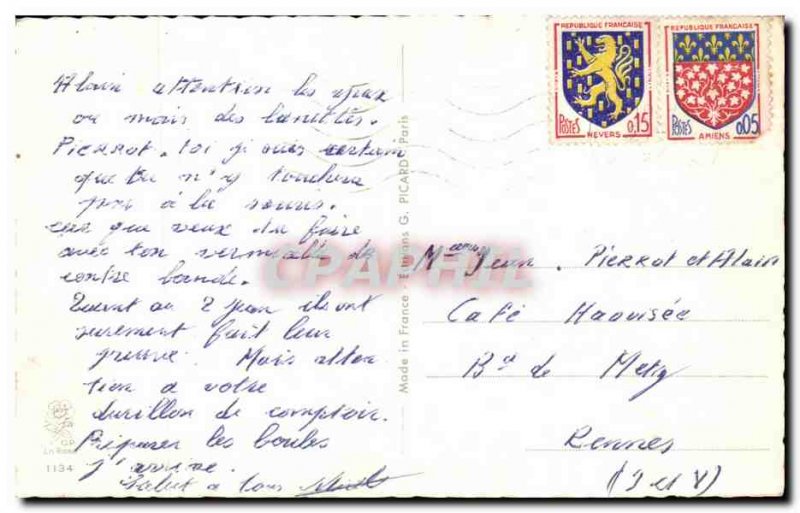 Alain attention les yeux
ou mais des lunettes.
Pierrot. toi je suis certain
que tu n'y touchera
pas à la souris.
que veux tu faire
avec ton vermicelle de
contre bande.
2 Jean ils ont
surement fait leur
preuve. Mais atten
tion a votre
durillon de comptoir.
Préparer les boules
j'arrive.
Salut a tous
REPUBLIQUE FRANÇAISE
POSTES
NEVERS
0,15
REPUBLIQUE FRANÇAISE
POSTES
AMIENS
0,05
Jean. Pierrot et Alain
Café Haouisée
Bd de Metz
Rennes
(I et V)
Made in France - Editions G. PICARD, Paris
GP
1134
CPAPHIL.com